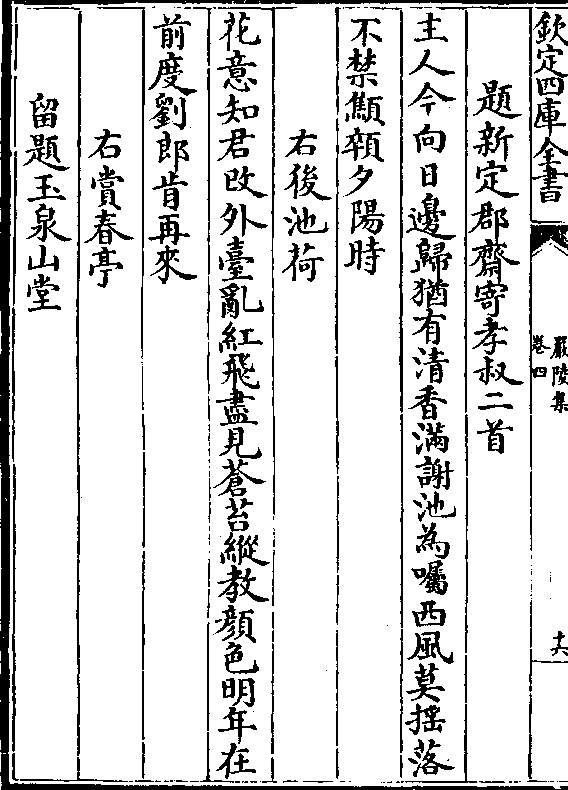 欽定四庫全書
嚴陵集
卷四
十六
題新定郡齋寄孝叔二首
主人今向日邊歸猶有清香滿謝池為囑西風莫摇落
不禁顦顇夕陽時
右後池荷
花意知君改外臺亂紅飛盡見蒼苔縱教顔色明年在
前度劉郎肯再來
右賞春亭
留題玉泉山堂